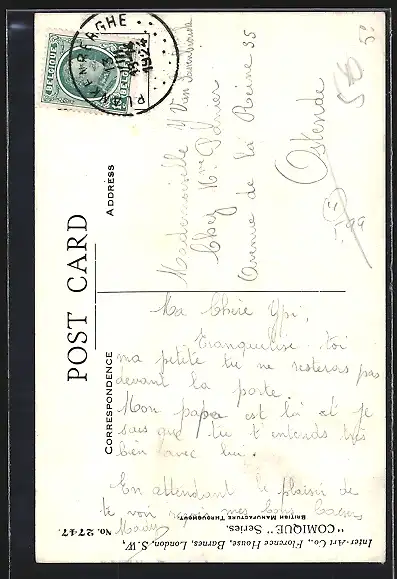 BELGIQUE
BELGIË
BLANKENBERGHE
1924
POST CARD
ADDRESS
Mademoiselle Y Van
Chez Mme
Avenue de la Reine 35
Ostende
CORRESPONDENCE
Ma Chère Ypi,
Tranquilise toi
ma petite tu ne resteras pas
devant la porte.
Mon papa est là et je
sais que tu t'entends très
bien avec lui.
En attendant le plaisir de
te voir mes bons
Inter-Art Co., Florence House, Barnes, London, S.W,
BRITISH MANUFACTURE THROUGHOUT.
"COMIQUE" Series.
No. 2747.